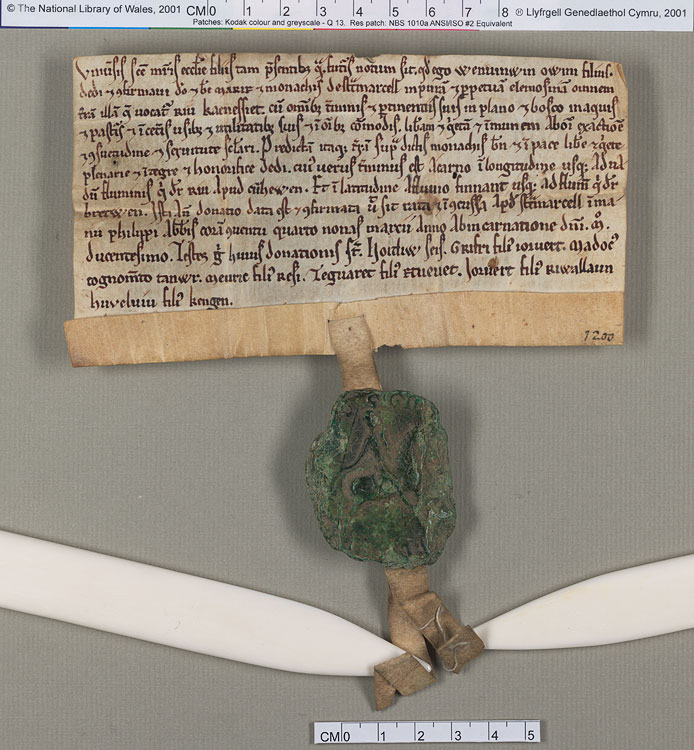 © The National Library of Wales, 2001 CM 0 1 2 3 4 5 6 7 8 ® Llyfrgell Genedlaethol Cymru, 2001
Patches: Kodak colour and greyscale - Q 13. Res patch: NBS 1010a ANSI/ISO #2 Equivalent
Vniu'sis scē mr̄is eccl'ie filiis tam p'sentib; q̄ futuris notum sit. qd̄ ego wenunwin owini filius.
dedi ⁊ 9firmaui dō ⁊ bē marie ⁊ monachis de st̄tmarcell in purā ⁊ p̱petuā elemosinā omnem
t'rā illā q̄ uocat' riu kaenessiet. cū om̄ib; t'minis ⁊ p̱tinentiis suis in plano ⁊ bosco in aquis
⁊ pascuis ⁊ utilitatib; suis ⁊ ī om̄ib; cōmodis. lib'am ⁊ īmunem Ab om̄i exactiōe
⁊ 9suetudine ⁊ seruitute sc'lari. Predictā sup̱ dictis monachis ⁊ in pace lib'e ⁊ q'ete
plenarie ⁊ īteg're ⁊ honorifice dedi. cui' uerus t'minus est Acarno ī longitudine usq; Ad
flumini' q̄ dr̄ riu Apud cuhewen. Et ī latitudine Afluuio finnant usq; Ad flum̄ q̄ dr̄
brewen. donatio data est ⁊ 9firmata sit rata ⁊ Apd̄ st̄tmarcell ī ma
nu philippi Abb̄is quarto nonas marcii Anno Abincarnatione dn̄i. m̊.
ducentesimo. Testes g̊ huius donationis st̄. hoidliw seis. Grifri fili' ioruert. madoc'
cognom̄to tanwr. meuric fili' resi. Ieguaret fili' etueuet. Ioruert fili' riwallaun
huueluiu fili' kengen.
1200
CM 0 1 2 3 4 5